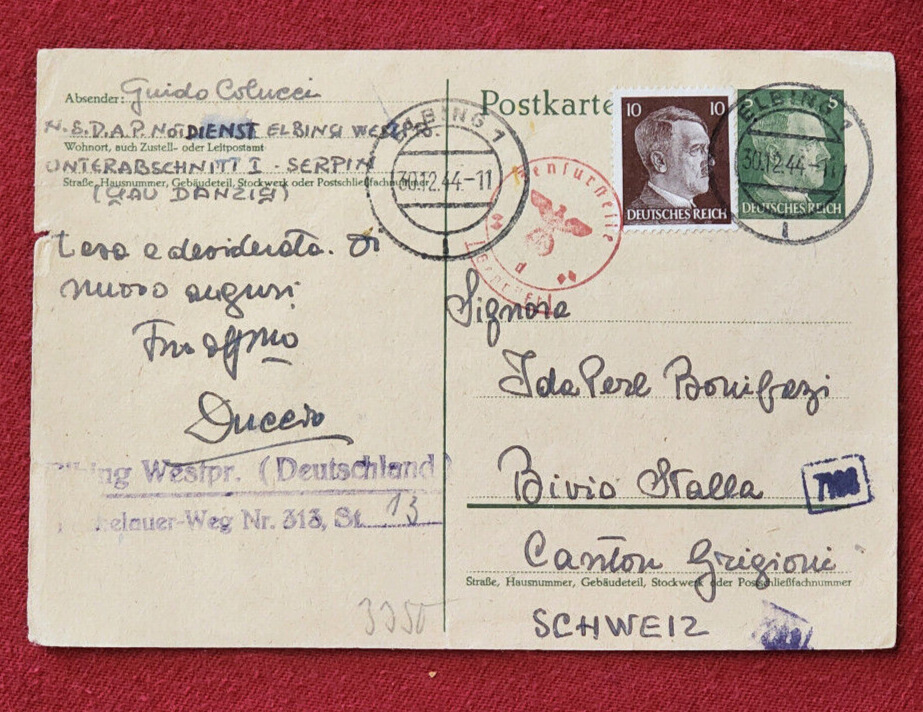 Absender: Guido Colucci
N.S.D.A.P. NOTDIENST ELBING WESTPR.
Wohnort, auch Zustell- oder Leitpostamt
UNTERABSCHNITT I - SERPIN
Straße, Hausnummer, Gebäudeteil, Stockwerk oder Postschließfachnummer
(GAU DANZIG)
e desiderata. Di
nuovo auguri
Duccio
Westpr. (Deutschland)
elauer-Weg Nr. 313, St. 13
3350
ELBING 1
30.12.44-11
Postkarte
10 10
DEUTSCHES REICH
5
DEUTSCHES REICH
ELBING 1
30.12.44-11
Signora
Ida Perl Bonifazi
Bivio Stalla
Canton Grigioni
Straße, Hausnummer, Gebäudeteil, Stockwerk oder Postschließfachnummer
SCHWEIZ